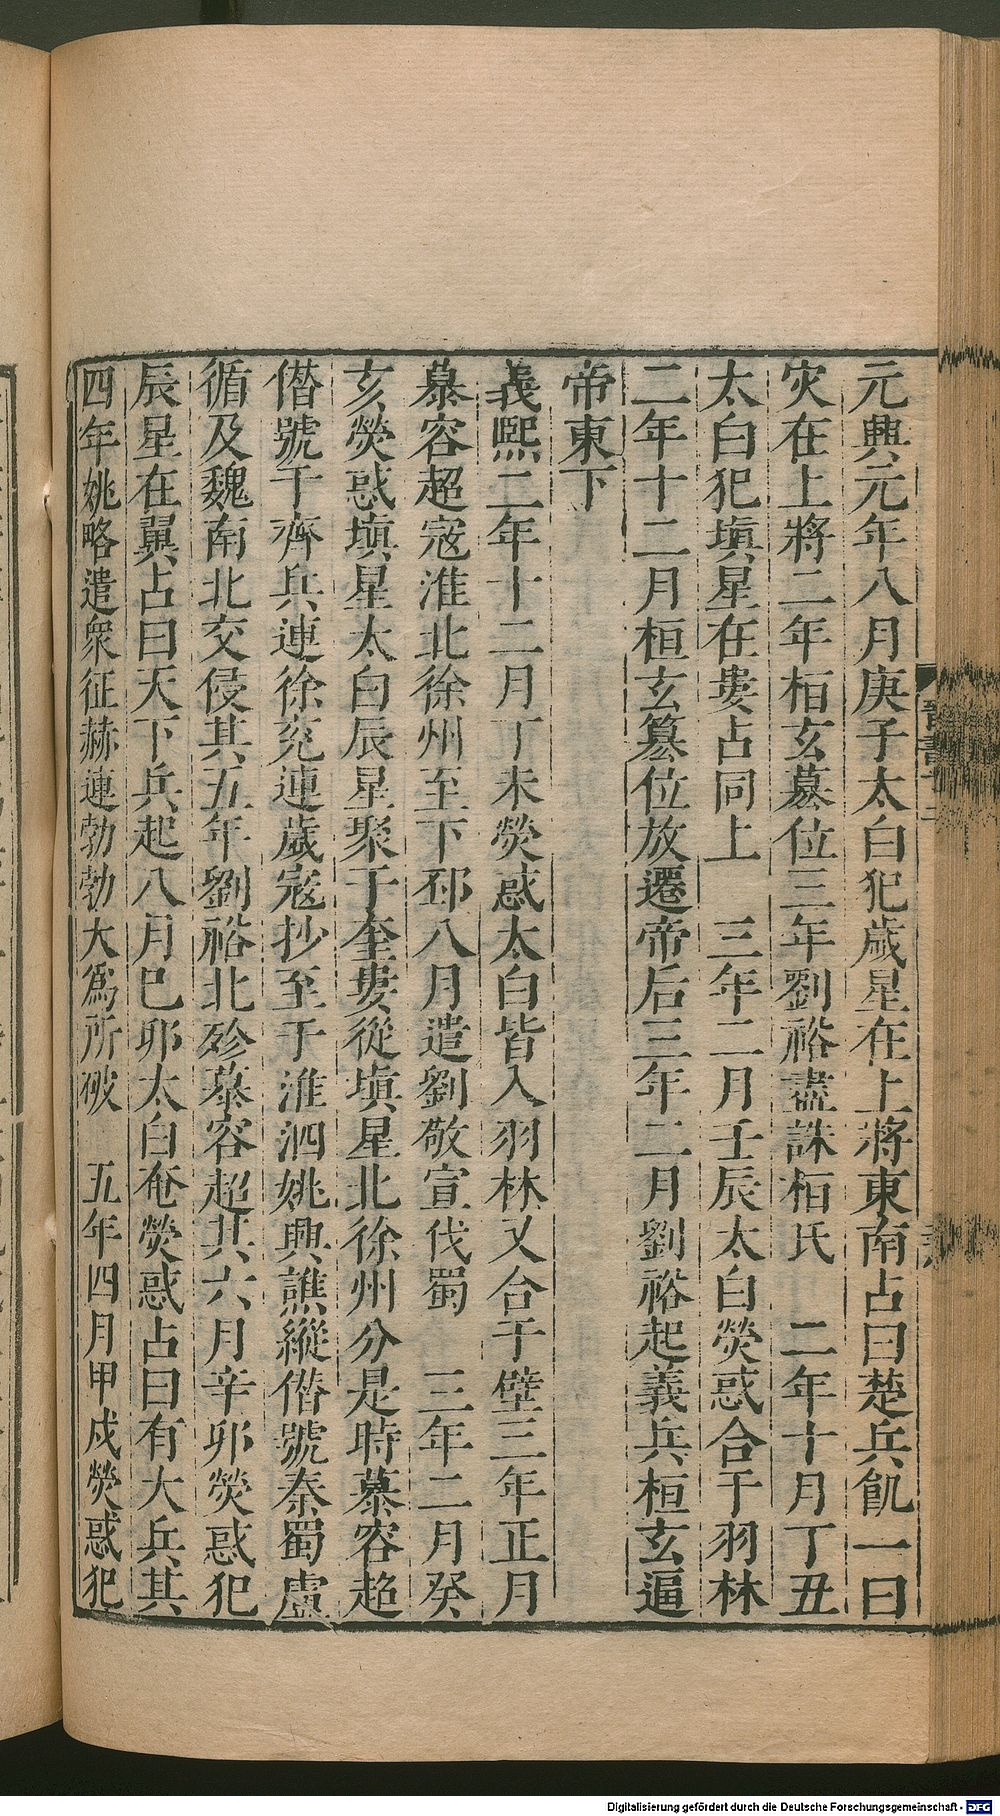 元興元年八月庚子太白犯歲星在上將東南占曰楚兵飢一曰
灾在上將二年桓玄簒位三年劉裕盡誅桓氏　二年十月丁丑
太白犯塡星在婁占同上　三年二月壬辰太白熒惑合于羽林
二年十二月桓玄簒位放遷帝后三年二月劉裕起義兵桓玄逼
帝東下
義熙二年十二月丁未熒惑太白皆入羽林又合于壁三年正月
慕容超寇淮北徐州至下邳八月遣劉敬宣伐蜀　三年二月癸
亥熒惑塡星太白辰星聚于奎婁從塡星北徐州分是時慕容超
僭號于齊兵連徐兗連歲寇抄至于淮泗姚興譙縱僭號秦蜀盧
循及魏南北交侵其五年劉裕北殄慕容超其六月辛卯熒惑犯
辰星在翼占曰天下兵起八月己卯太白奄熒惑占曰有大兵其
四年姚略遣衆征赫連勃勃大爲所破　五年四月甲戌熒惑犯
Digitalisierung gefördert durch die Deutsche Forschungsgemeinschaft - DFG